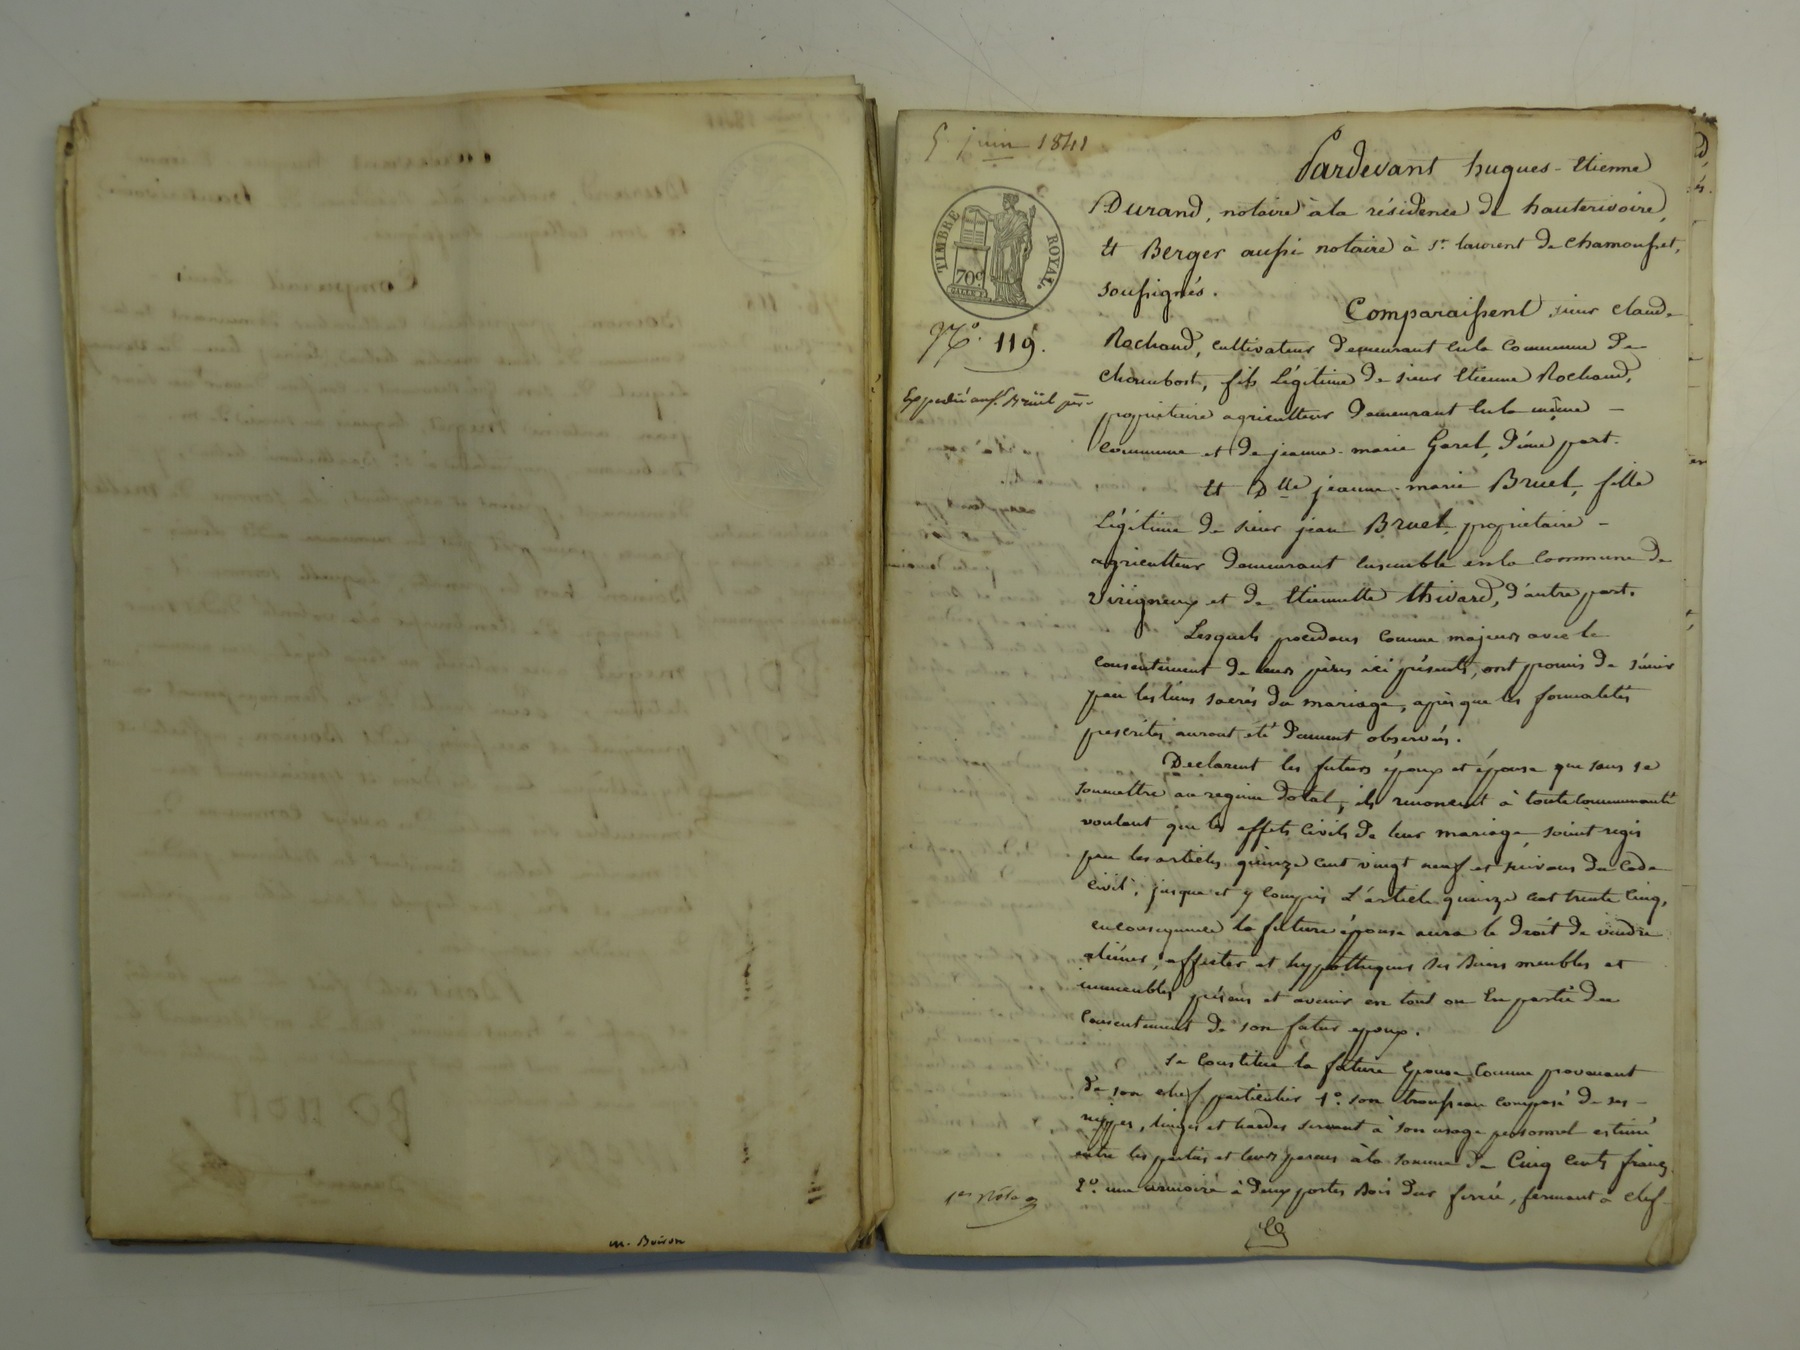 5 juin 1841
Pardevant hugues-Etienne
Durand, notaire à la résidence de hauterivoire,
Et Berger aussi notaire à St. laurent de Chamousset,
soussignés.
TIMBRE ROYAL.
70c
No. 119.
Comparaissent sieur claude
Rochand, cultivateur demeurant en la Commune de
Chambost, fils Légitime de sieur Etienne Rochand,
Expedié au
propriétaire agriculteur demeurant en la même –
Commune et de jeanne-marie Garel, d'une part.
Et Dlle jeanne-marie Bruel, fille
Légitime de sieur jean Bruel, propriétaire –
agriculteur demeurant ensemble en la Commune de
Virigneux et de Etiennette thivard, d'autre part.
Lesquels procédans comme majeurs avec le
consentement de leurs pères ici présents, ont promis de s'unir
par les liens sacrés du mariage, après que les formalités
prescrites auront été dument observées.
Declarent les futurs époux et épouse que sans se
soumettre au regime dotal, ils renoncent à toute communauté
voulant que les effets Civils de leur mariage soient regis
par les articles quinze cent vingt neuf et suivans du Code
Civil, jusque et y compris L'article quinze cent trente Cinq,
en consequence la future épouse aura le droit de vendre
aliéner, affecter et hypothequer ses biens meubles et
immeubles présens et avenir en tout ou En partie du
Consentement de son futur epoux.
se Constitue la future Epouse Comme provenant
de son chef particulier 1o. son trousseau composé de ses –
nippes, linges et hardes servant à son usage personnel estimé
entre les parties et leurs parens à la somme de Cinq Cents francs
2o. une armoire à deux portes bois dur ferrée, fermant à clef –
1er Rôle
m. Boiron